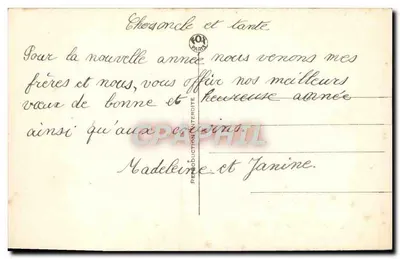 Chers oncle et tante
Pour la nouvelle année nous venons mes
frères et nous, vous offrir nos meilleurs
vœux de bonne et heureuse année
ainsi qu'aux cousins.
Madeleine et Janine.
REPRODUCTION INTERDITE